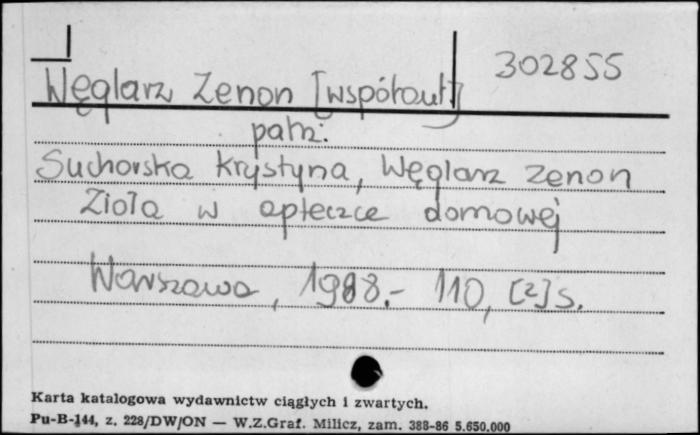 302855
Węglarz Zenon [współaut]
patrz:
Suchorska Krystyna, Węglarz Zenon
Zioła w apteczce domowej
Warszawa, 1988.- 110, [2] s.
Karta katalogowa wydawnictw ciągłych i zwartych.
Pu-B-144, z. 228/DW/ON — W.Z.Graf. Milicz, zam. 388-86 5.650.000